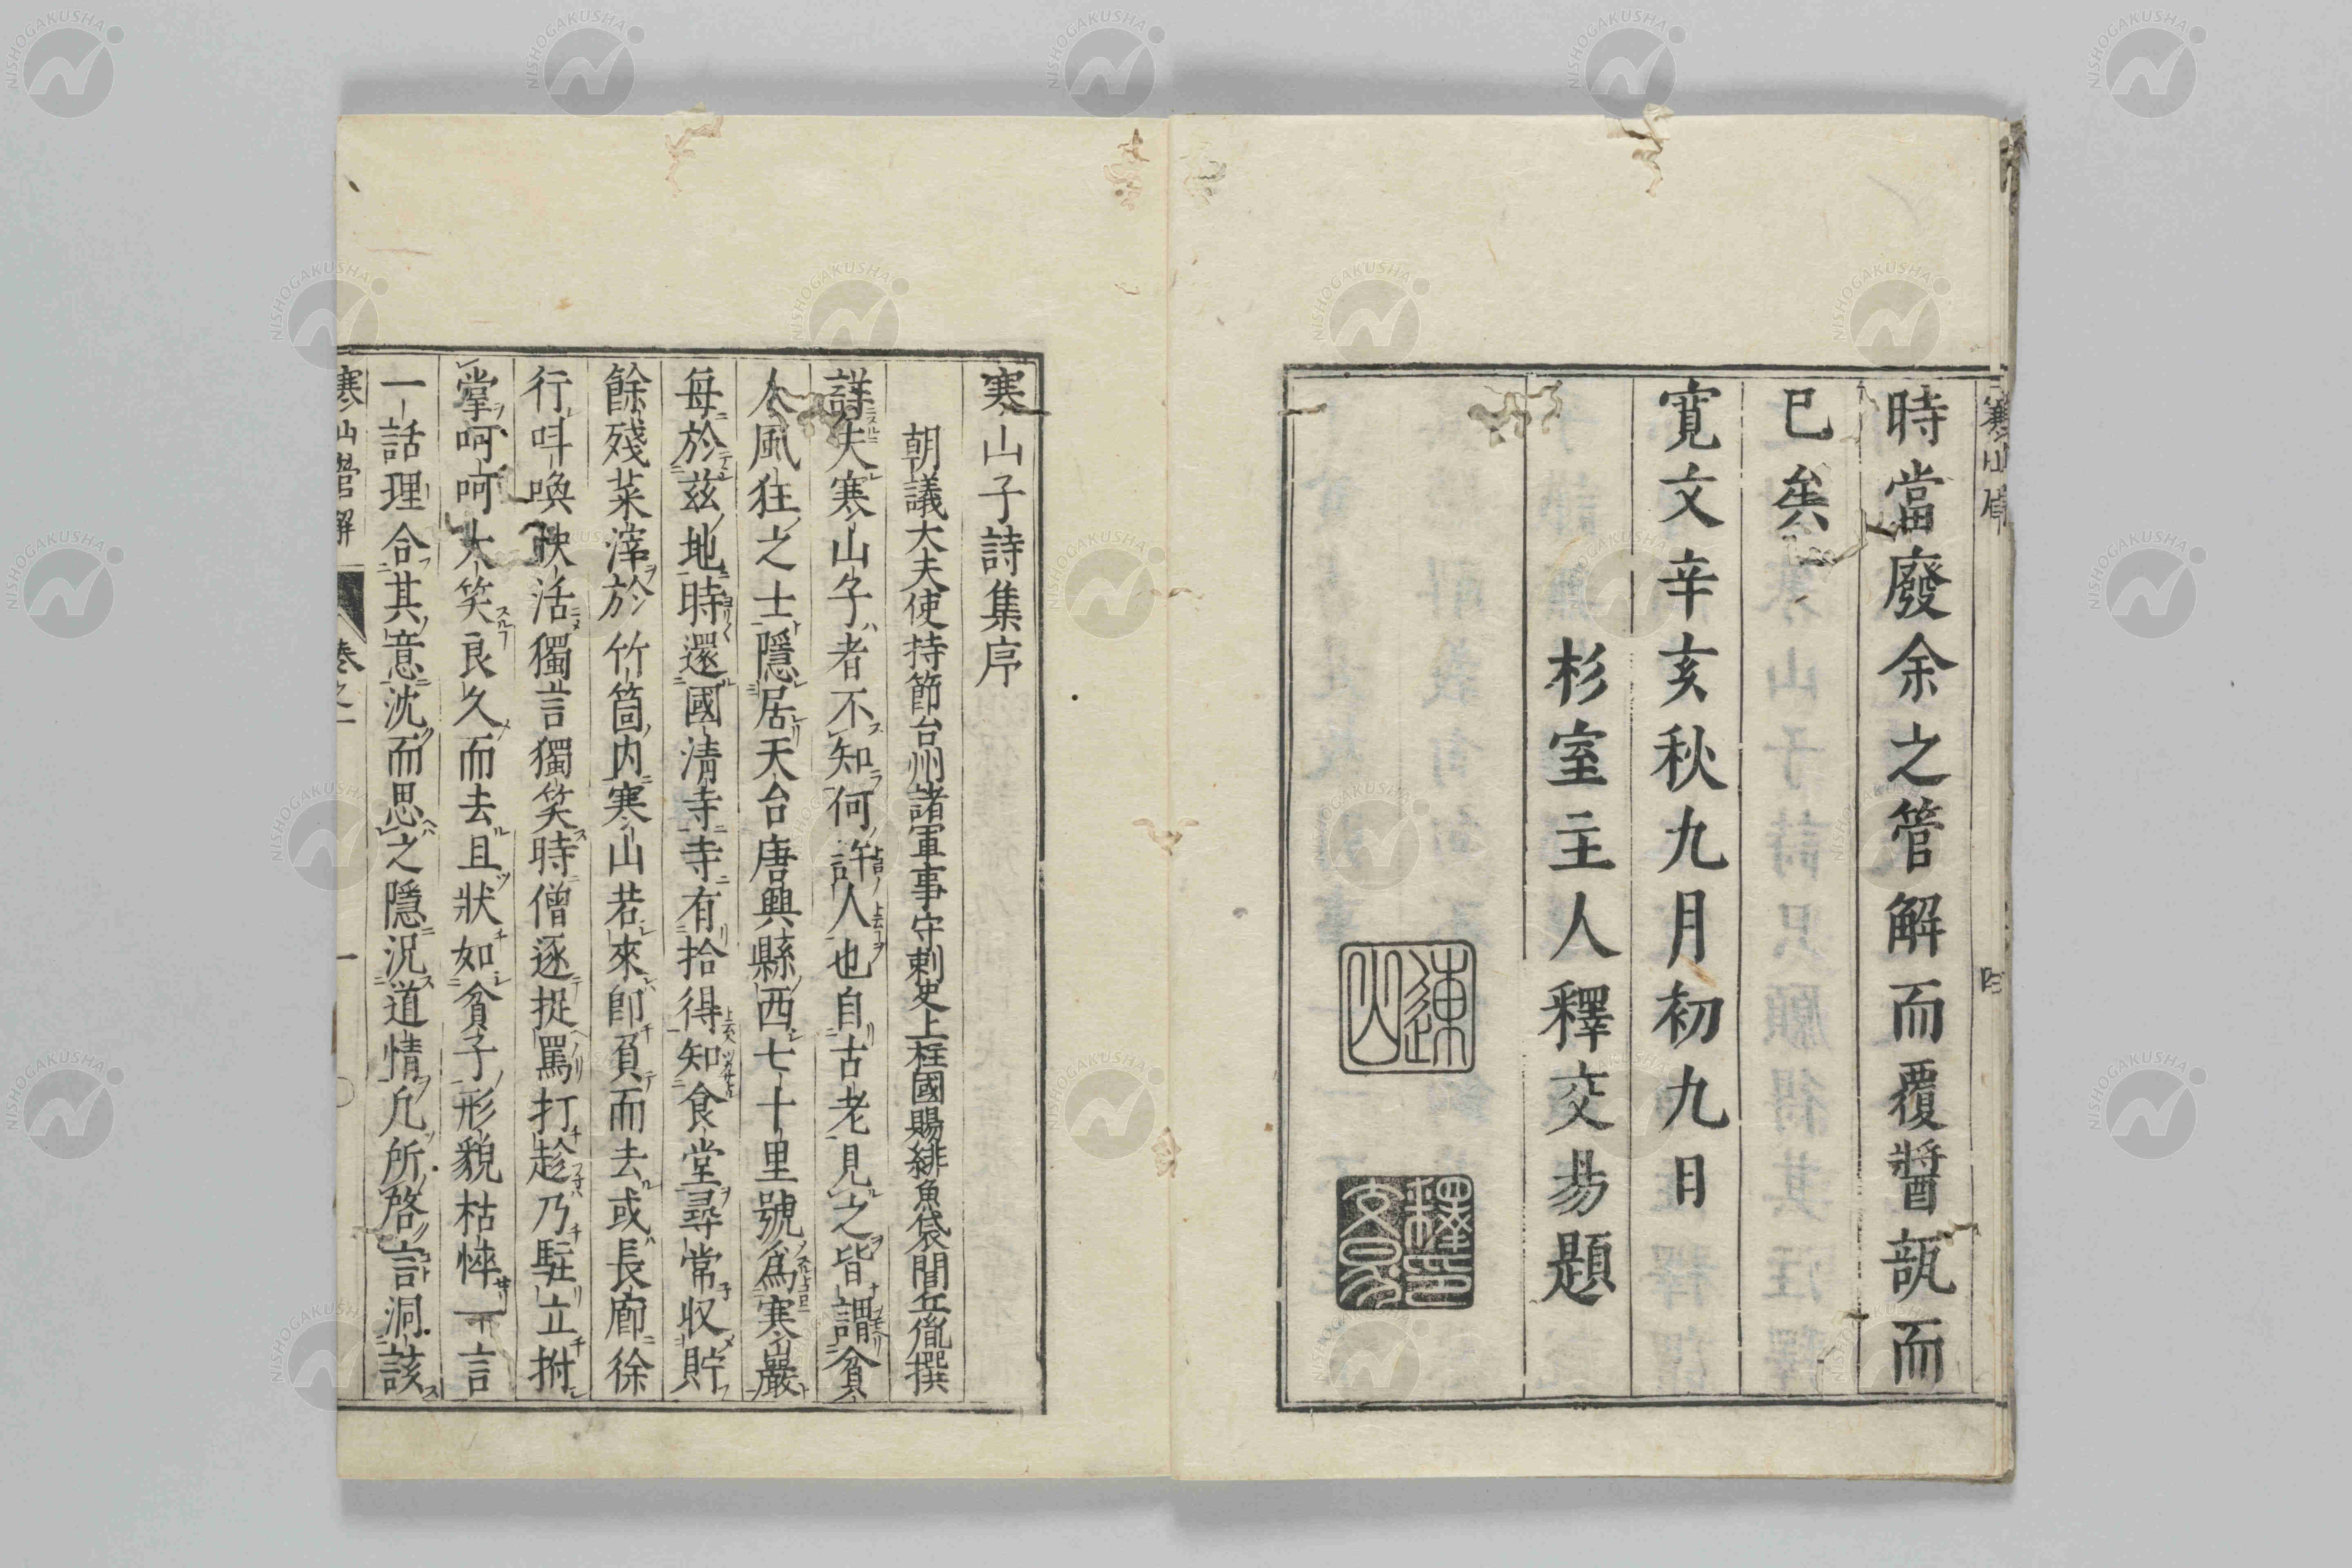 時當廢余之管解而覆醬瓿而
已矣
寛文辛亥秋九月初九日
杉室主人釋交易題
連山
釋氏交易
寒山子詩集序
朝議大夫使持節台州諸軍事守刺史上柱國賜緋魚袋閭丘胤撰
詳夫寒山子者不知何許人也自古老見之皆謂貧
人風狂之士隱居天台唐興縣西七十里號爲寒巖
每於茲地時還國清寺寺有拾得知食堂尋常收貯
餘殘菜滓於竹筒内寒山若來即負而去或長廊徐
行叫喚快活獨言獨笑時僧逐捉罵打趁乃駐立拊
掌呵呵大笑良久而去且狀如貧子形貌枯悴一言
一話理合其意沈而思之隱況道情凢所啓言洞該
寒山管解 卷之一 一
NISHOGAKUSHA